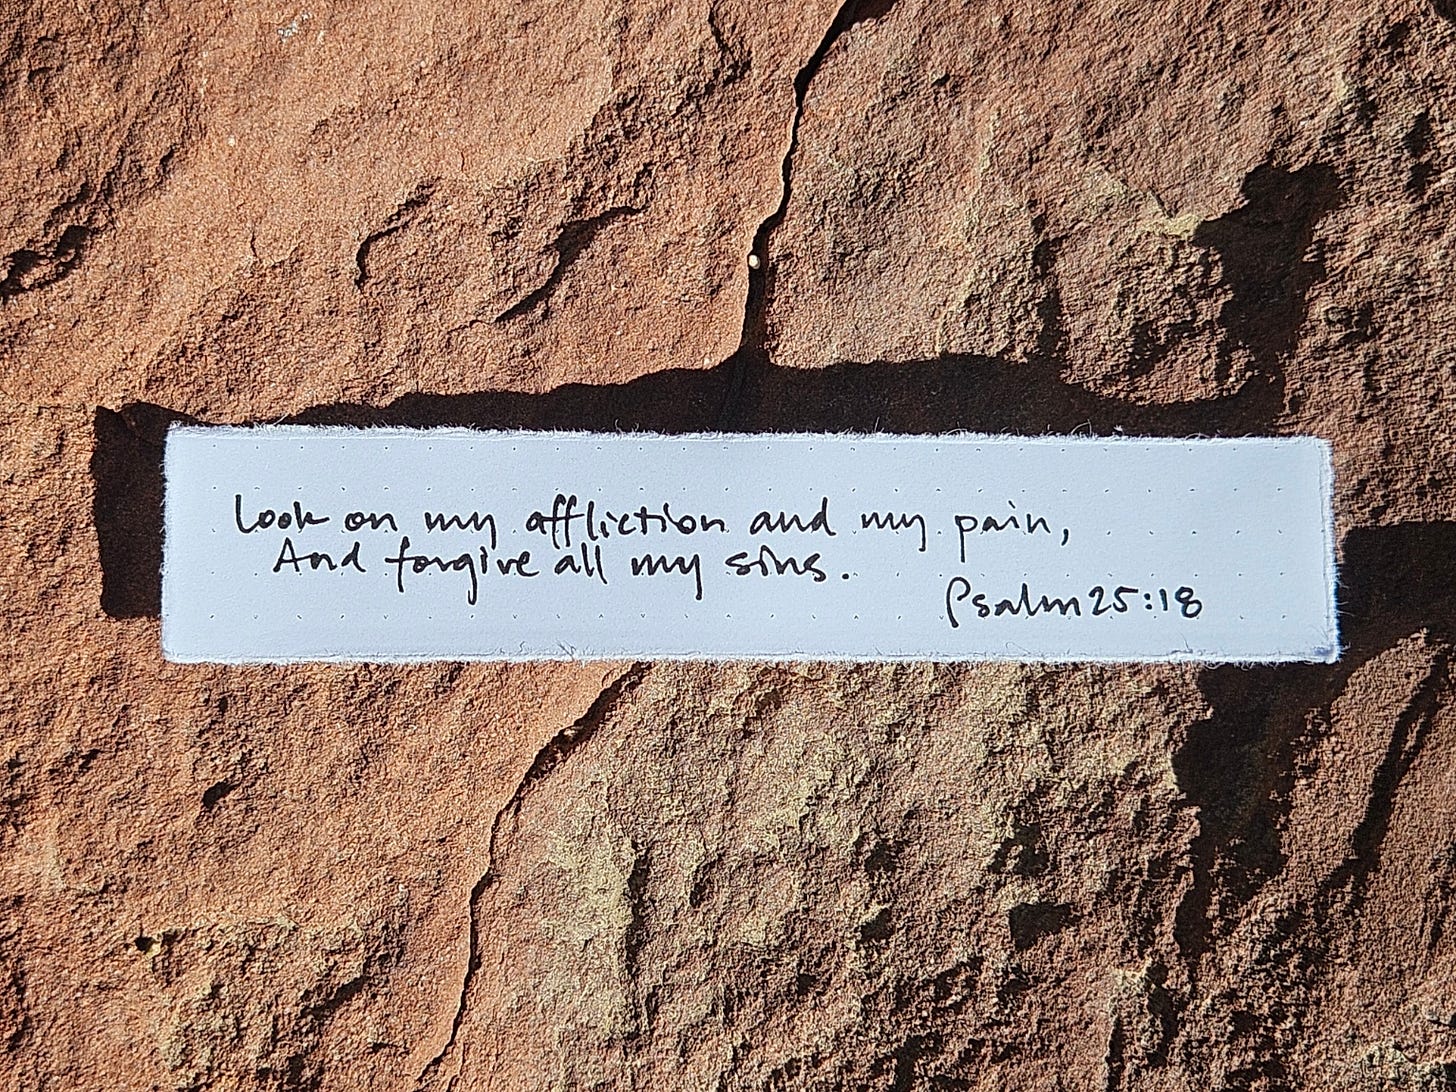 Look on my affliction and my pain,
And forgive all my sins.
Psalm 25:18